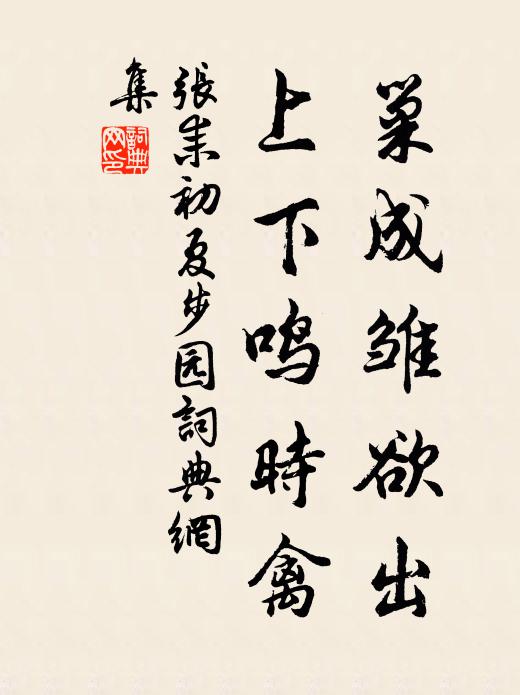 巢成雏欲出
上下鸣時禽
張耒初夏步园詞典網
集
詞典网印